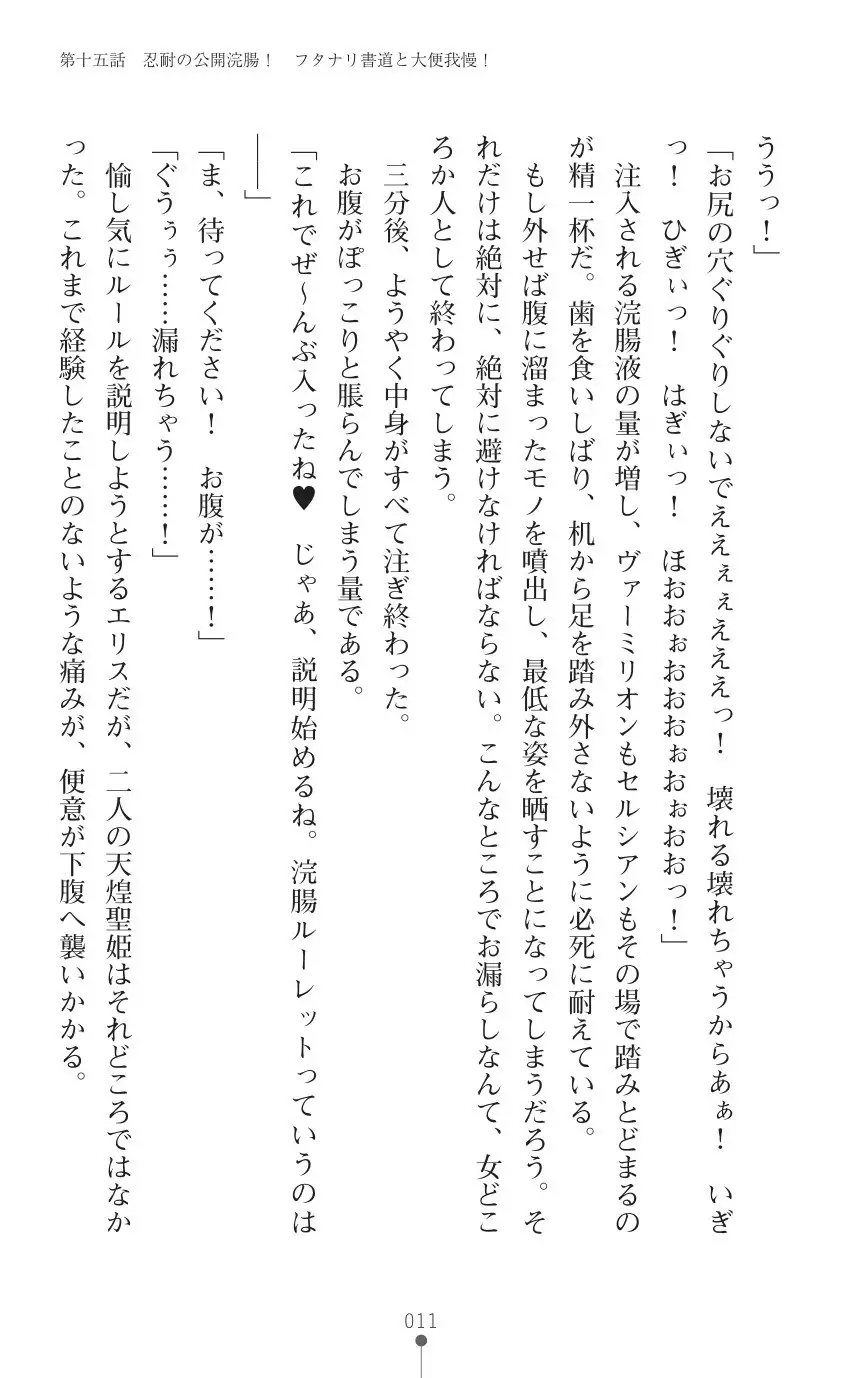 第十五話　忍耐の公開浣腸！　フタナリ書道と大便我慢！
ううっ！」
「お尻の穴ぐりぐりしないでええぇぇえええっ！　壊れる壊れちゃうからあぁ！　いぎ
っ！　ひぎぃっ！　はぎぃっ！　ほおおぉおおおぉおぉおおっ！」
注入される浣腸液の量が増し、ヴァーミリオンもセルシアンもその場で踏みとどまるの
が精一杯だ。歯を食いしばり、机から足を踏み外さないように必死に耐えている。
もし外せば腹に溜まったモノを噴出し、最低な姿を晒すことになってしまうだろう。そ
れだけは絶対に、絶対に避けなければならない。こんなところでお漏らしなんて、女どこ
ろか人として終わってしまう。
三分後、ようやく中身がすべて注ぎ終わった。
お腹がぽっこりと脹らんでしまう量である。
「これでぜ～んぶ入ったね♥　じゃあ、説明始めるね。浣腸ルーレットっていうのは
――」
「ま、待ってください！　お腹が……！」
「ぐうぅぅ……漏れちゃう……！」
愉し気にルールを説明しようとするエリスだが、二人の天煌聖姫はそれどころではなか
った。これまで経験したことのないような痛みが、便意が下腹へ襲いかかる。
011